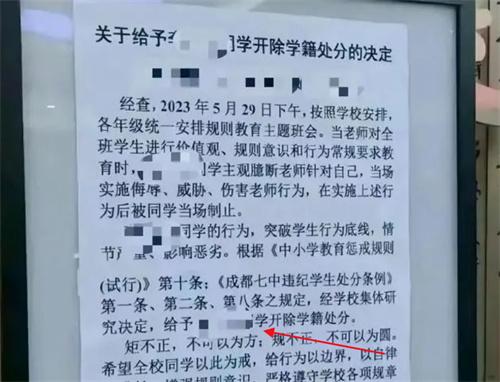 关于给予 同学开除学籍处分的决定
经查，2023年5月29日下午，按照学校安排，
各年级统一安排规则教育主题班会。当老师对全
班学生进行价值观、规则意识和行为常规要求教
育时， 同学主观臆断老师针对自己，当场
实施侮辱、威胁、伤害老师行为，在实施上述行
为后被同学当场制止。
同学的行为，突破学生行为底线，情
节严重、影响恶劣。根据《中小学教育惩戒规则
(试行)》第十条；《成都七中违纪学生处分条例》
第一条、第二条、第八条之规定，经学校集体研
究决定，给予 学开除学籍处分。
矩不正，不可以为方；规不正，不可以为圆。
希望全校同学以此为戒，给行为以边界，以自律
增强规则意识，严格遵守学校各项规章